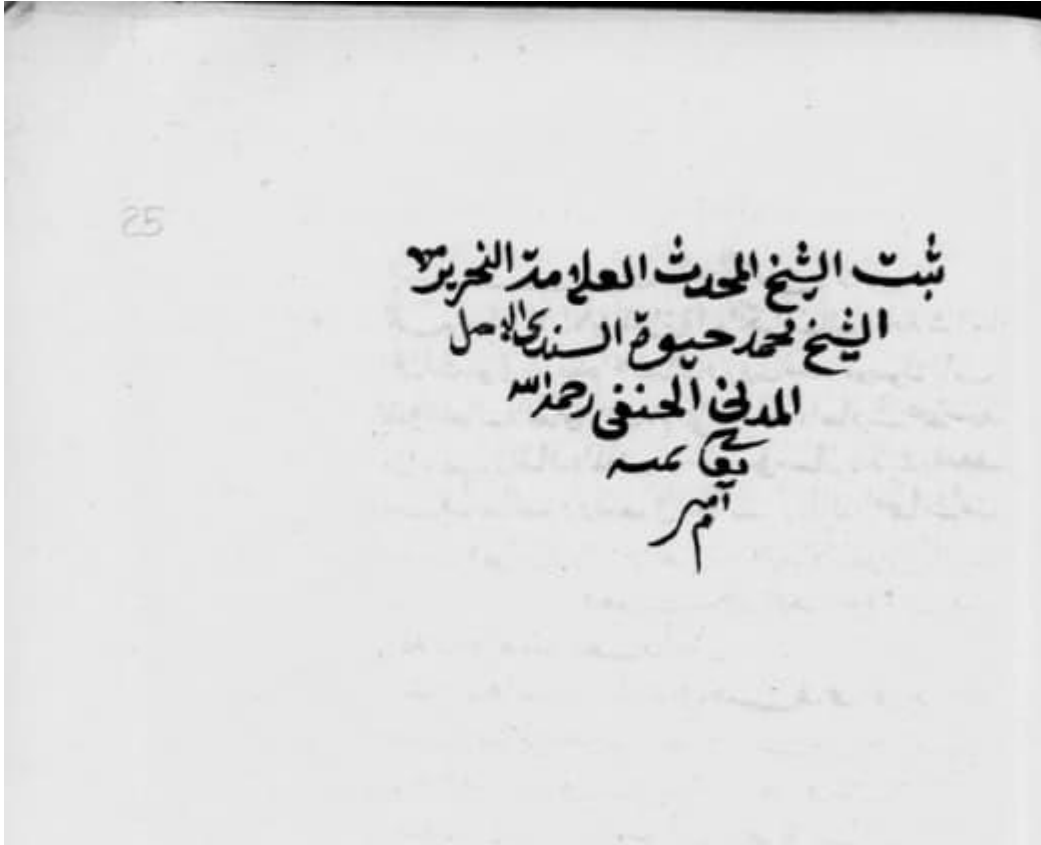 25
ثبت الشيخ المحدث العلامة النحرير
الشيخ محمد حيوة السندي الاصل
المدني الحنفي رحمه الله
تعالى بمنه
آمين م